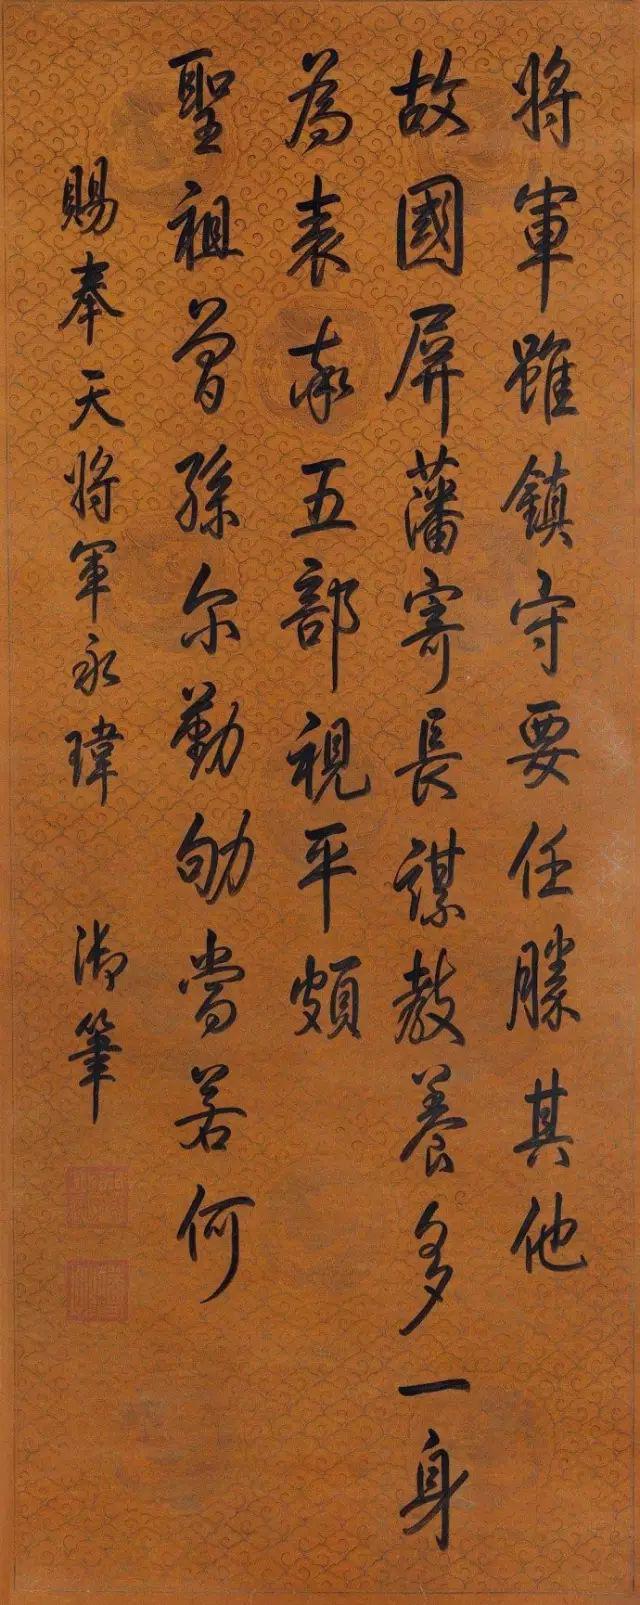 將軍雖鎮守要任勝其他
故國屏藩寄長謀教養多一身
為表率五部視平頗
聖祖曾孫尔勤劬當若何
賜奉天將軍永瑋 御筆